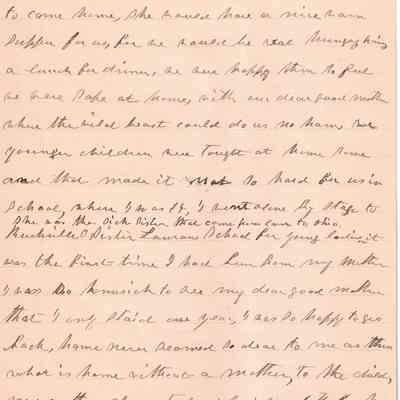 to come home, she would have a nice warm
supper for us, for we would be real hungry
a lunch for dinner, we were happy then to feel
we were safe at home, with our dear good mother
where the wild beast could do us no harm,
younger children were taught at home some
and that made it not so hard for us in
School, when I was 14, I went alone by stage to
She was the Sick Sister that come from to Ohio.
O Sister School for young ladies it
was the first time I had from my mother
I was so homesick to see my dear good mother
that I only staid one year, I was so happy to go
back, home never seemed so dear to me as then
what is home without a mother, to the child,